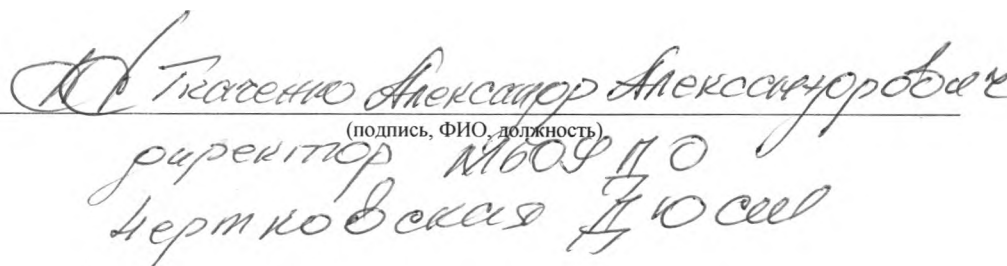 Ткаченко Александр Александрович
(подпись, ФИО, должность)
директор МБОУ ДО
Чертковская ДЮСШ